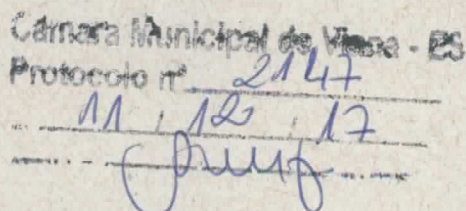 Câmara Municipal de Viana - ES
Protocolo nº 2147
11 / 12 / 17